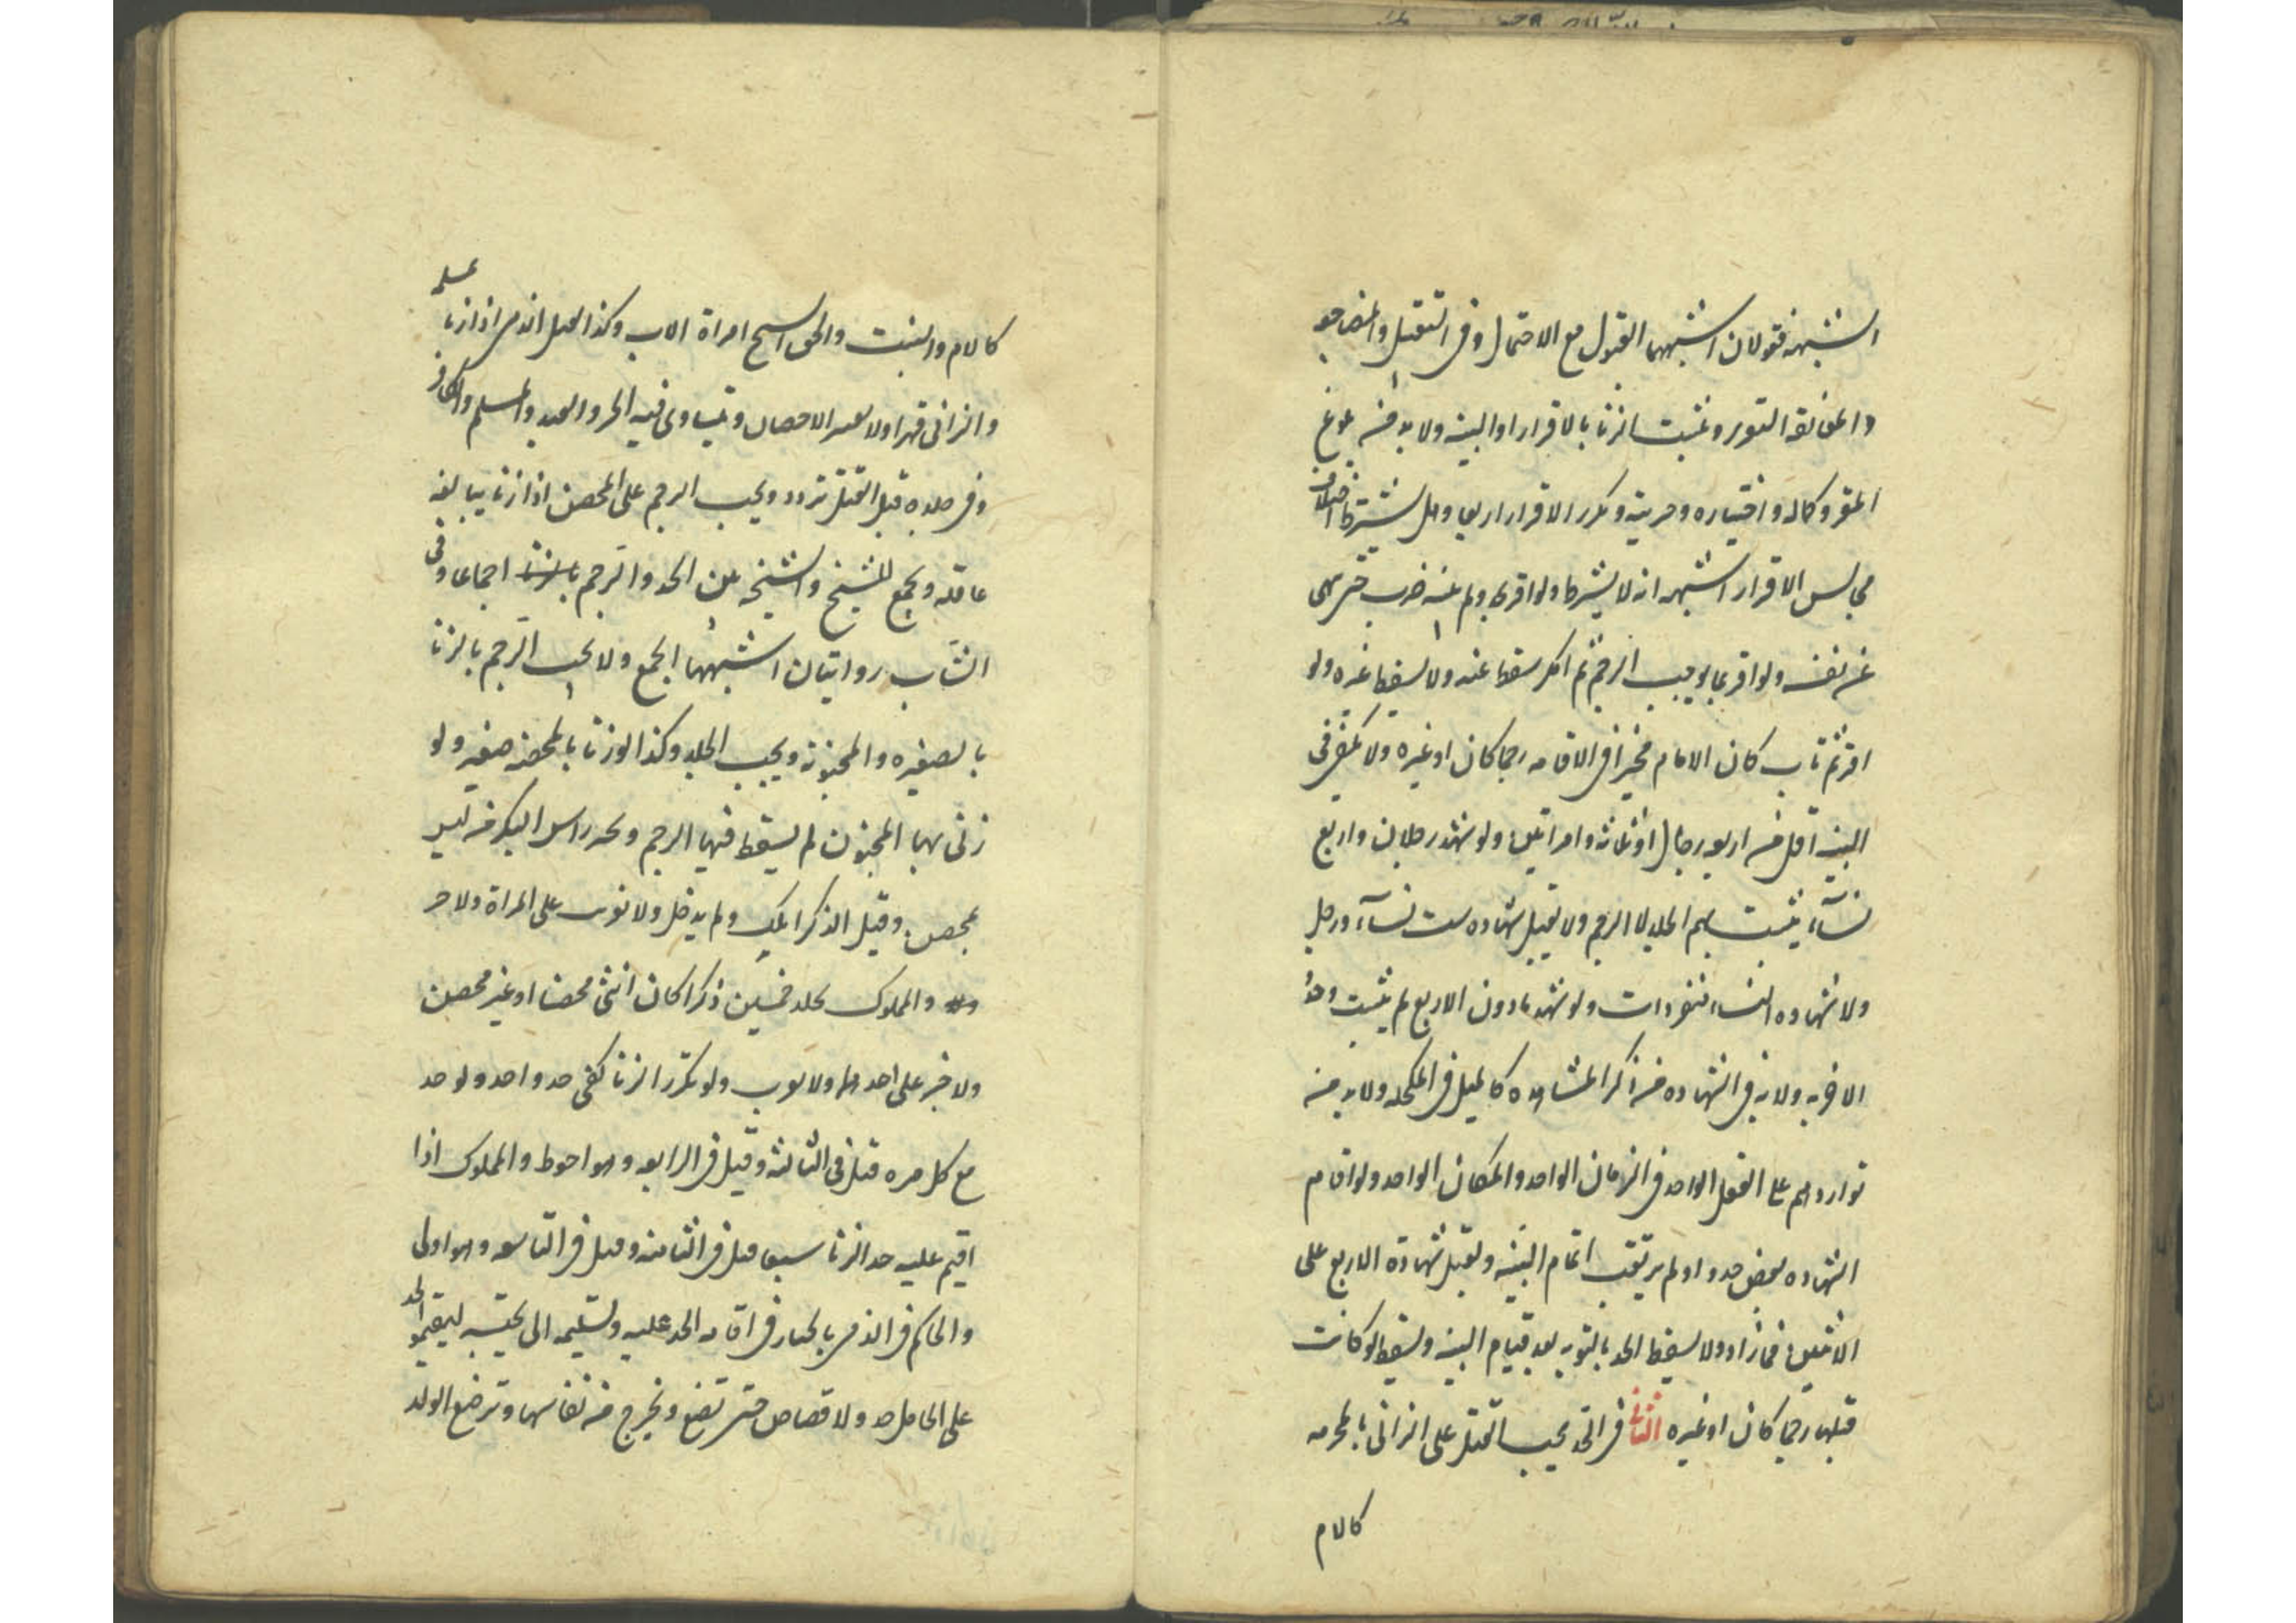 الشبهة فقولان اشبههما القبول مع الاحتمال وفي التقبيل والمضاجعه
والمعانقة التعزير ويثبت الزنا بالاقرار او البينه ولا بد من بلوغ
المقر وكماله واختياره وحريته وتكرر الاقرار اربعا وهل يشترط اختلاف
مجالس الاقرار اشبهه انه لا يشترط ولو اقر بحد ولم يبينه ضرب حتى ينهى
عن نفسه ولو اقر بما يوجب الرجم ثم انكر سقط عنه ولا يسقط غيره ولو
اقر ثم تاب كان الامام مخيرا في الاقامه رجما كان او غيره ولا يكفي في
البينه اقل من اربعه رجال او ثلاثه وامراتين ولو شهد رجلان واربع
نسآء يثبت بهم الجلد لا الرجم ولا تقبل شهاده ست نسآء ورجل
ولا شهاده النساء منفردات ولو شهد ما دون الاربع لم يثبت وحدوا
للفريه ولا بد في الشهاده من ذكر المشاهده كالميل في المكحله ولا بد من
تواردهم على الفعل الواحد في الزمان الواحد والمكان الواحد ولو اقام
الشهاده بعض حدوا ولم يرتقب اتمام البينه وتقبل شهادة الاربع على
الاثنين فما زاد ولا يسقط الحد بالتوبه بعد قيام البينه ويسقط لو كانت
قبلها رجما كان او غيره الثانى في الحد يجب القتل على الزانى بالمحرمه
كالام
كالام والبنت والحق الشيخ امراة الاب وكذا يقتل الذمى اذا زنا بمسلمه
والزانى قهرا ولا يعتبر الاحصان ويتساوى فيه الحر والعبد والمسلم والكافر
وفي جلده قبل القتل تردد ويجب الرجم على المحصن اذا زنا ببالغه
عاقله ويجمع للشيخ والشيخه بين الحد والرجم بالزنا اجماعا وفى
الشاب روايتان اشبههما الجمع ولا يجب الرجم بالزنا
بالصغيره والمجنونة ويجب الجلد وكذا لو زنا بالمحصنه صغير ولو
زنى بها المجنون لم يسقط عنها الرجم ويحد راس البكر من ليس
بمحصن وقيل الذى املك ولم يدخل ولا تغريب على المراة ولا جز
والمملوك يجلد خمسين ذكرا كان انثى محصنا او غير محصن
ولا جز على احدهما ولا تغريب ولو تكرر الزنا كفى حد واحد ولو حد
مع كل مره قتل فى الثالثه وقيل فى الرابعه وهو احوط والمملوك اذا
اقيم عليه حد الزنا سبعا قتل فى الثامنه وقيل فى التاسعه وهو اولى
والحاكم فى الذمى بالخيار فى اقامه الحد عليه وتسليمه الى نحلته ليقيموا الحد
على الحامل حد ولا قصاص حتى تضع وتخرج من نفاسها وترضع الولد